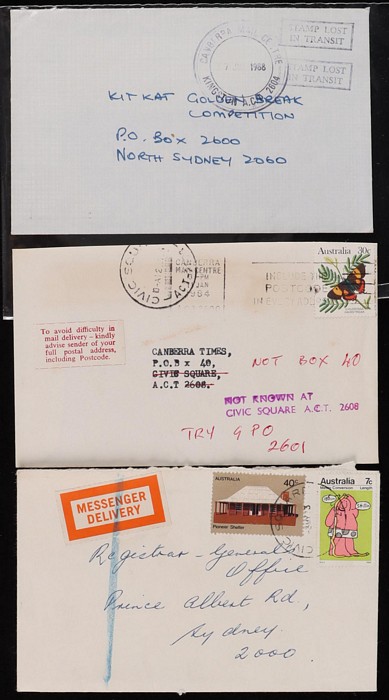 STAMP LOST
IN TRANSIT
STAMP LOST
IN TRANSIT
CANBERRA
1988
KINGSTON A.C.T. 2604
KIT KAT GOLDEN BREAK
COMPETITION
P.O. BOX 2600
NORTH SYDNEY 2060
CIVIC SQUARE
ACT
CANBERRA
MAIL CENTRE
PM
JAN
1984
INCLUDE
POSTCODE
IN
Australia 30c
To avoid difficulty in
mail delivery – kindly
advise sender of your
full postal address,
including Postcode.
CANBERRA TIMES,
P.O.B x 40,
CIVIC SQUARE,
A.C.T 2608.
NOT BOX 40
NOT KNOWN AT
CIVIC SQUARE A.C.T. 2608
TRY GPO
2601
MESSENGER
DELIVERY
AUSTRALIA
40c
Pioneer Shelter
CIVIC
Australia 7c
Metric Conversion Length
Registrar-General's
Office
Prince Albert Rd,
Sydney.
2000.